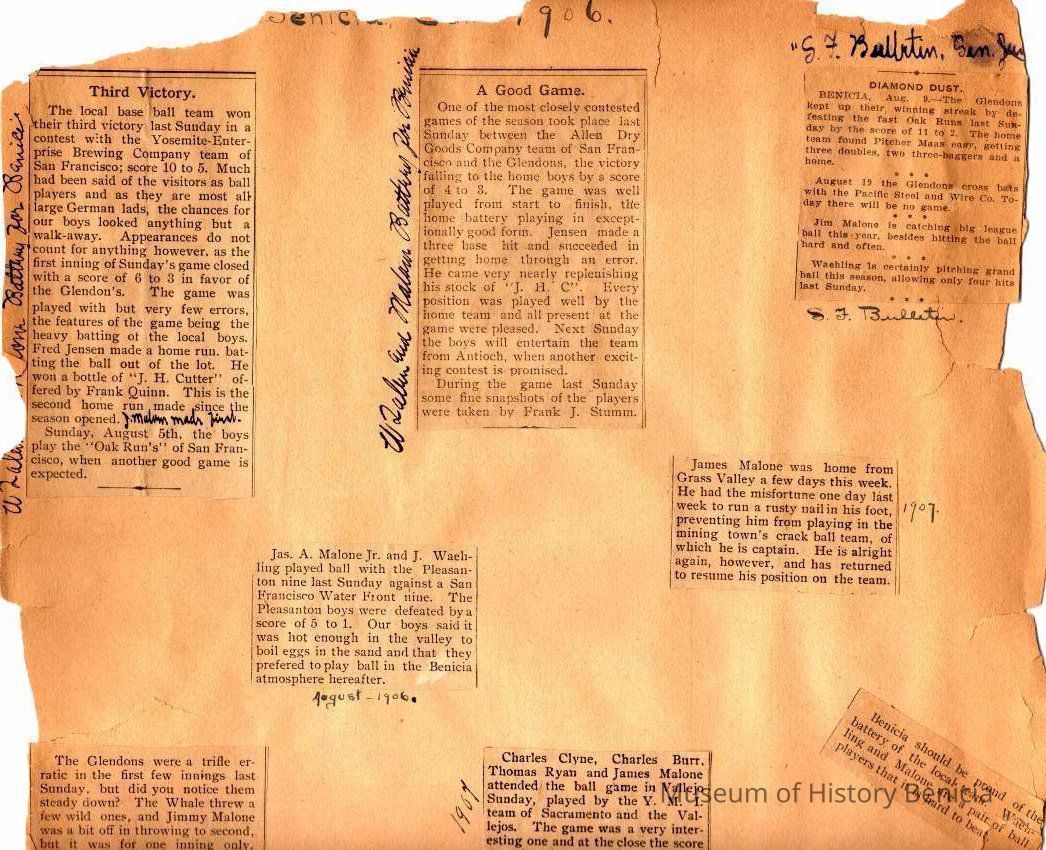 Benicia, 1906.
Third Victory.
The local base ball team won
their third victory last Sunday in a
contest with the Yosemite-Enter-
prise Brewing Company team of
San Francisco; score 10 to 5. Much
had been said of the visitors as ball
players and as they are most all
large German lads, the chances for
our boys looked anything but a
walk-away. Appearances do not
count for anything however, as the
first inning of Sunday's game closed
with a score of 6 to 3 in favor of
the Glendon's. The game was
played with but very few errors,
the features of the game being the
heavy batting of the local boys.
Fred Jensen made a home run, bat-
ting the ball out of the lot. He
won a bottle of "J. H. Cutter" of-
fered by Frank Quinn. This is the
second home run made since the
season opened. J. Malone made first.
Sunday, August 5th, the boys
play the "Oak Run's" of San Fran-
cisco, when another good game is
expected.
Battery for Benicia
A Good Game.
One of the most closely contested
games of the season took place last
Sunday between the Allen Dry
Goods Company team of San Fran-
cisco and the Glendons, the victory
falling to the home boys by a score
of 4 to 3. The game was well
played from start to finish, the
home battery playing in except-
ionally good form. Jensen made a
three base hit and succeeded in
getting home through an error.
He came very nearly replenishing
his stock of "J. H. C". Every
position was played well by the
home team and all present at the
game were pleased. Next Sunday
the boys will entertain the team
from Antioch, when another excit-
ing contest is promised.
During the game last Sunday
some fine snapshots of the players
were taken by Frank J. Stumm.
and Malone Battery for Benicia
"S. F. Bulletin,
DIAMOND DUST.
BENICIA, Aug. 9.—The Glendons
kept up their winning streak by de-
feating the fast Oak Runs last Sun-
day by the score of 11 to 2. The home
team found Pitcher Maas easy, getting
three doubles, two three-baggers and a
home.
* * *
August 19 the Glendons cross bats
with the Pacific Steel and Wire Co. To-
day there will be no game.
* * *
Jim Malone is catching big league
ball this year, besides hitting the ball
hard and often.
* * *
Waehling is certainly pitching grand
ball this season, allowing only four hits
last Sunday.
* * *
S. F. Bulletin.
James Malone was home from
Grass Valley a few days this week.
He had the misfortune one day last
week to run a rusty nail in his foot,
preventing him from playing in the
mining town's crack ball team, of
which he is captain. He is alright
again, however, and has returned
to resume his position on the team.
1907.
Jas. A. Malone Jr. and J. Waeh-
ling played ball with the Pleasan-
ton nine last Sunday against a San
Francisco Water Front nine. The
Pleasanton boys were defeated by a
score of 5 to 1. Our boys said it
was hot enough in the valley to
boil eggs in the sand and that they
prefered to play ball in the Benicia
atmosphere hereafter.
August – 1906.
The Glendons were a trifle er-
ratic in the first few innings last
Sunday, but did you notice them
steady down? The Whale threw a
few wild ones, and Jimmy Malone
was a bit off in throwing to second,
but it was for one inning only.
1907
Charles Clyne, Charles Burr,
Thomas Ryan and James Malone
attended the ball game in Vallejo
Sunday, played by the Y. M. I.
team of Sacramento and the Val-
lejos. The game was a very inter-
esting one and at the close the score
Benicia should be proud of the
battery of the local team. Waeh-
ling and Malone are a pair of ball
players that are hard to beat.
Museum of History Benicia